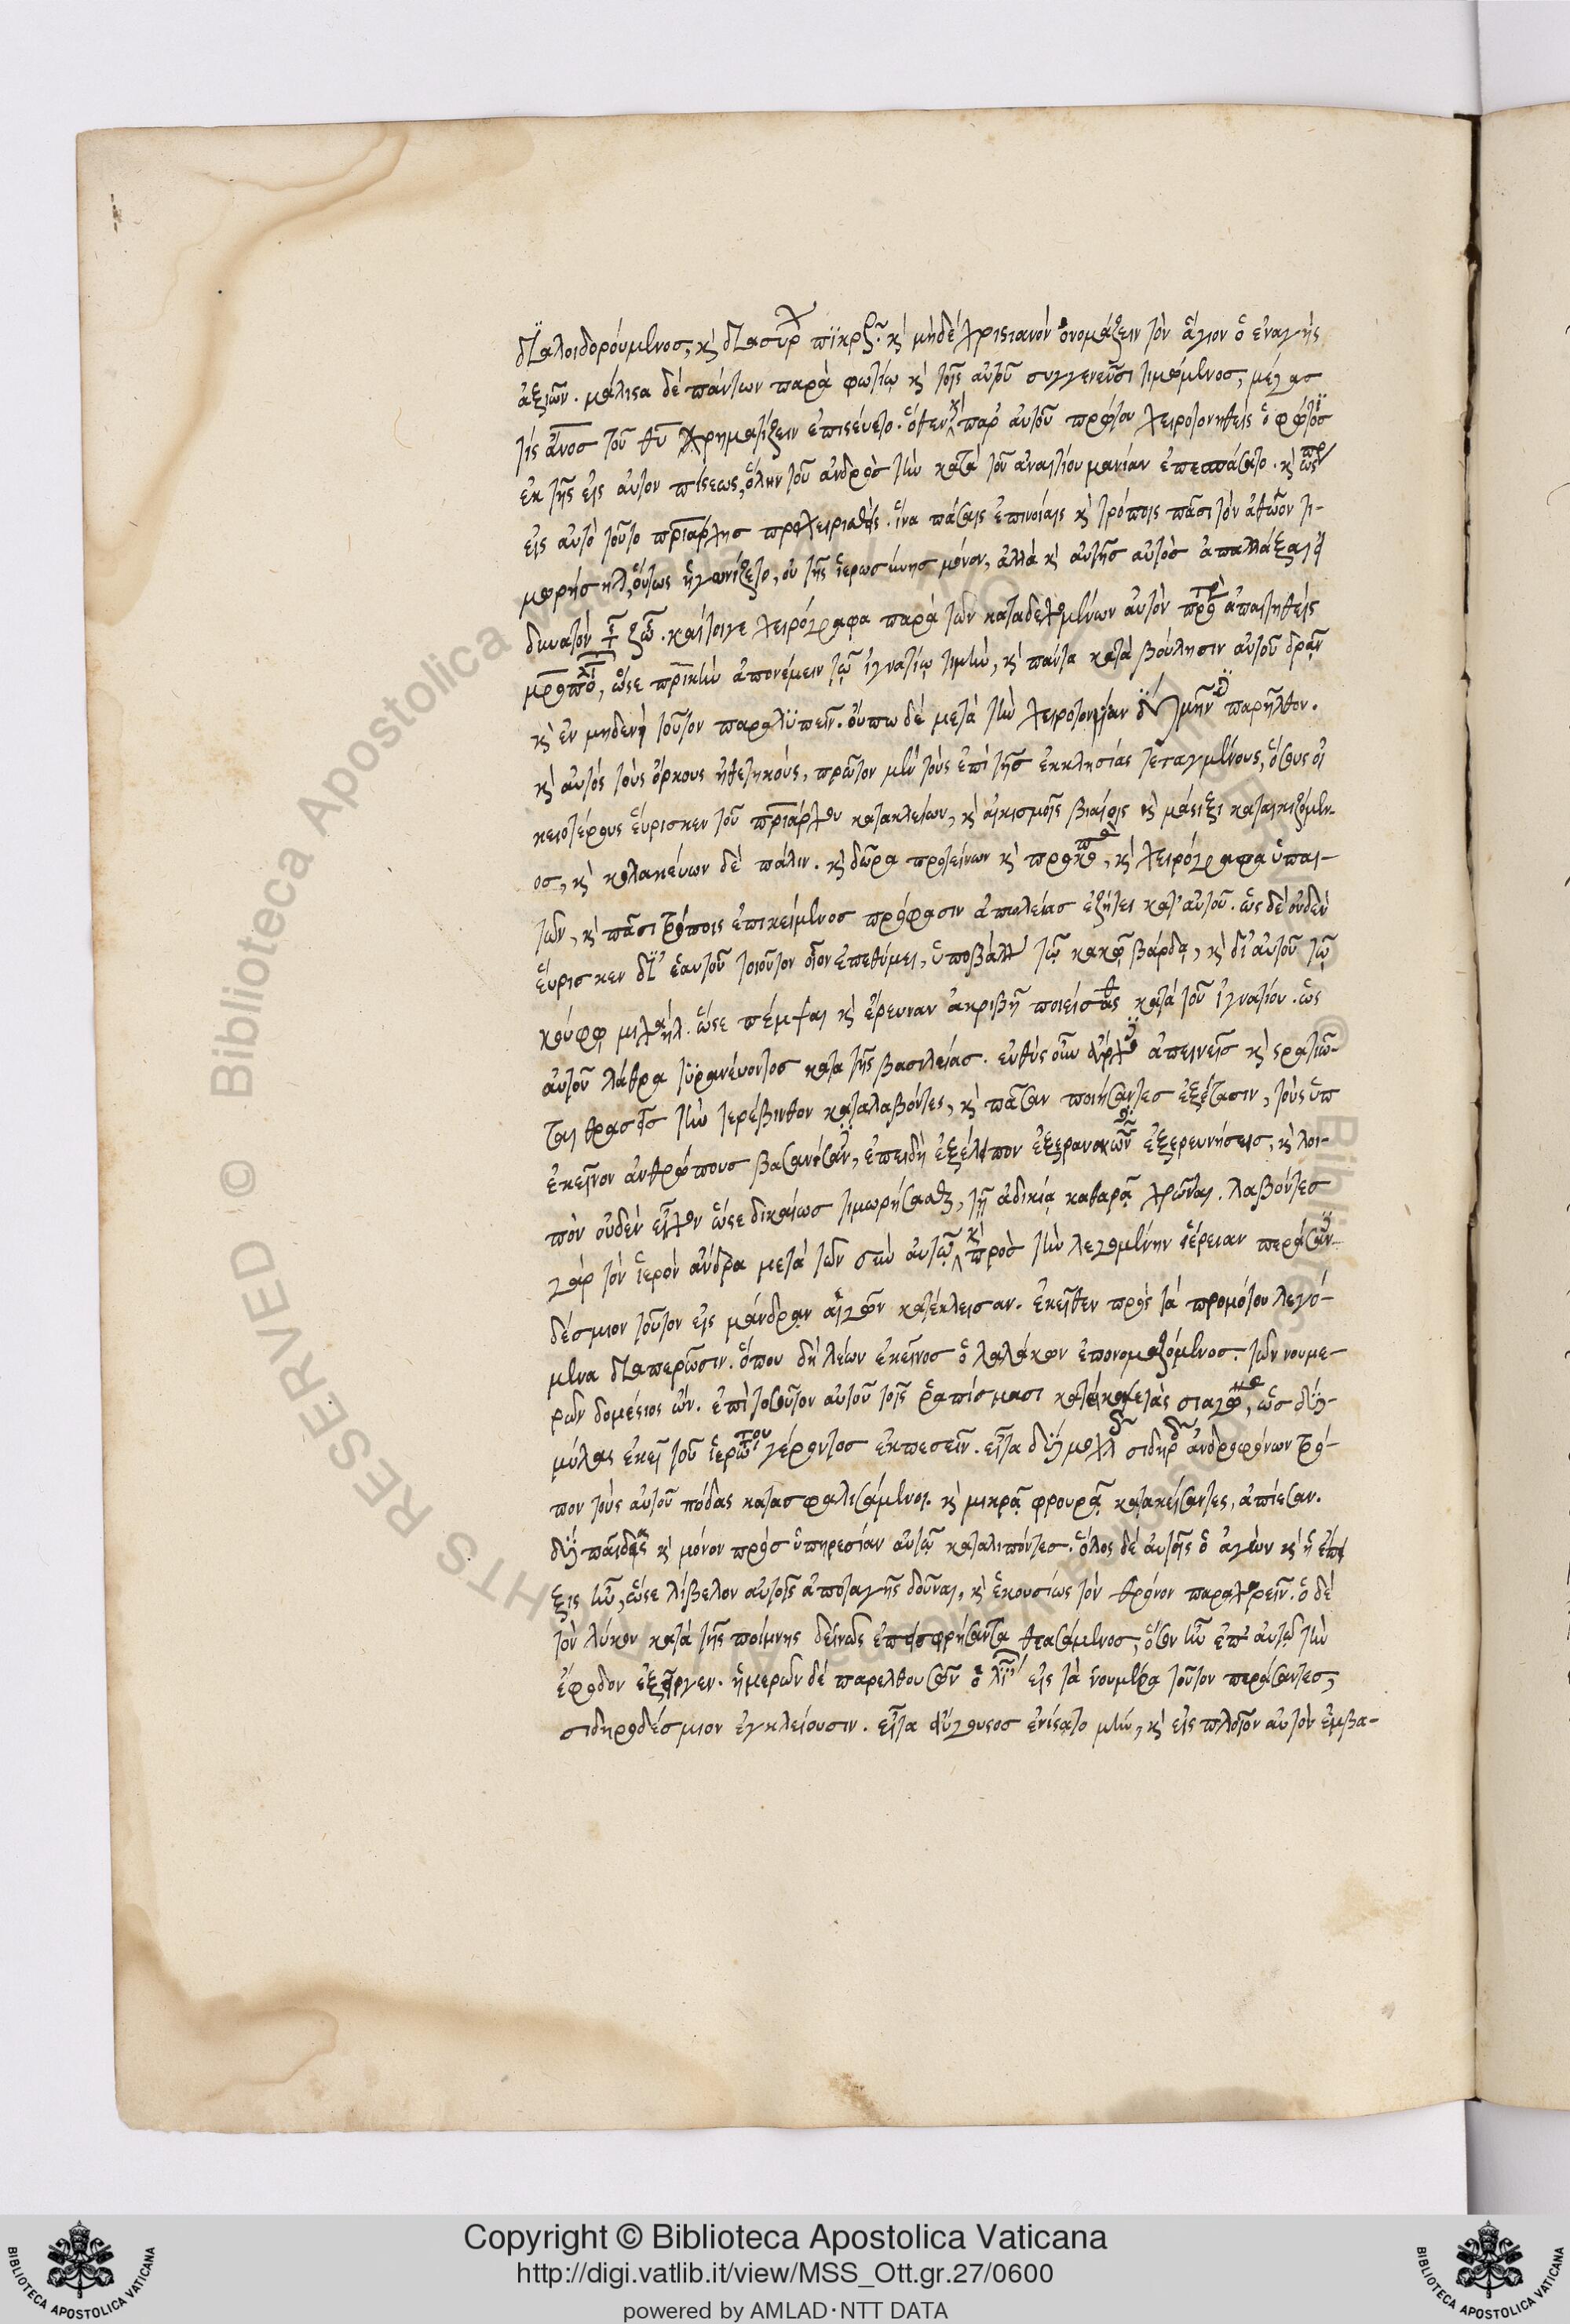 διαλοιδορούμενος, κὶ διασύρων πικρῶς. κὶ μηδὲ χριστιανὸν ὀνομάζειν τὸν ἅγιον ὁ ἐναγὴς
ἀξιῶν. μάλιστα δὲ πάντων παρὰ φωτίῳ κὶ τοῖς αὐτοῦ συγγενεῦσι τιμώμενος, μέγας
τίς ἄνος τοῦ θυ χρηματίζειν ἐπιστεύετο. ὅθεν κὶ παρ αὐτοῦ πρώτου χειροτονηθεὶς ὁ φώτιος
ἐκ τῆς εἰς αὐτον πίστεως, ὅλην τοῦ ἀνδρὸς τὴν κατὰ τοῦ ἀναιτίου μανίαν ἐπεσπάσατο. κὶ ὥσπερ
εἰς αὐτὸ τοῦτο πριάρχης προχειρισθείς. ἵνα πάσαις ἐπινοίαις κὶ τρόποις πᾶσι τὸν ἀθῶον τι-
μωρήσηται, οὕτως ἠγωνίζετο, οὐ τῆς ἱερωσύνης μόνον, ἀλλὰ κὶ αὐτῆς αὐτὸς ἀπαλλάξαι εἰ
δυνατὸν τῆς ζωῆς. καίτοιγε χειρόγραφα παρὰ τῶν καταδεχομένων αὐτὸν πρότερον ἀπαιτηθεὶς
ὥστε πρικὴν ἀπονέμειν τῷ ἰγνατίῳ τιμὴν, κὶ πάντα κατὰ βούλησιν αὐτοῦ δρᾶν
κὶ ἐν μηδενὶ τοῦτον παραλυπεῖν. οὔπω δὲ μετὰ τὴν χειροτονίαν μὴν παρῆλθον.
κὶ αὐτὸς τοὺς ὅρκους ἠθετηκοὺς, πρῶτον μὲν τοὺς ἐπὶ τῆς ἐκκλησίας τεταγμένους, ὅσους οἰ
κειοτέρους εὕρισκεν τοῦ πριάρχου κατακλείων, κὶ αἰκισμοῖς βιαίοις κὶ μάστιξι καταικιζόμεν-
ος, κὶ κολακεύων δὲ πάλιν. κὶ δῶρα προτείνων κὶ προκοπὰς, κὶ χειρόγραφα ὑπαι-
τῶν, κὶ πᾶσι τρόποις ἐπικείμενος πρόφασιν ἀπωλείας ἐζήτει κατ' αὐτοῦ. ὡς δὲ οὐδὲν
εὕρισκεν δι' ἑαυτοῦ τοιοῦτον οἷον ἐπεθύμει, ὑποβάλλει τῷ κακῷ βάρδᾳ, κὶ δι' αὐτοῦ τῷ
κούφῳ μιχαήλ. ὥστε πέμψαι κὶ ἔρευναν ἀκριβῆ ποιείσθαι κατὰ τοῦ ἰγνατίου. ὡς
αὐτοῦ λάθρα τυρανεύοντος κατα τῆς βασιλείας. εὐθὺς οὖν ἄρχοντες ἀπεινεῖς κὶ στρατιῶ-
ται θρασεῖς τὴν τερέβινθον καταλαβόντες, κὶ πᾶσαν ποιήσαντες ἐξέτασιν, τοὺς ὑπ
ἐκεῖνον ἀνθρώπους βασανίσαντες, ἐπειδὴ ἐξέλιπον ἐξερευνήσεις, κὶ λοι-
πὸν οὐδὲν εἶχον ὥστε δικαίως τιμωρήσασθαι, τῇ ἀδικίᾳ καθαρᾷ χρῶνται. λαβόντες
γὰρ τὸν ἱερὸν ἄνδρα μετὰ τῶν σὺν αὐτῷ κὶ πρὸς τὴν λεγομένην ἱέρειαν περάσαντες
δέσμιον τοῦτον εἰς μάνδραν αἰγῶν κατέκλεισαν. ἐκεῖθεν πρὸς τὰ προμότου λεγό-
μενα διαπερῶσιν. ὅπου δὴ λέων ἐκεῖνος ὁ λαλάκων ἐπονομαζόμενος. τῶν νουμέ-
ρων δομέστιος ὤν. ἐπὶ τοσοῦτον αὐτοῦ τοῖς ῥαπίσμασι κατέκοψε τὰς σιαγόνας, ὡς δύο
μύλας ἐκεῖ τοῦ ἱερωτάτου γέροντος ἐκπεσεῖν. εἶτα δύο μοχλοῖς σιδηροῖς ἀνδροφόνων τρό-
πον τοὺς αὐτοῦ πόδας κατασφαλισάμενοι. κὶ μικρᾷ φρουρᾷ κατακείσαντες, ἀπίεσαν.
δύο παῖδας κὶ μόνον πρὸς ὑπηρεσίαν αὐτῷ καταλιπόντες. ὅλος δὲ αὐτοῖς ὁ ἀγὼν κὶ ἡ ἔπει
ξις ἦν, ὥστε λίβελον αὐτοῖς ἀποταγῆς δοῦναι, κὶ ἑκουσίως τὸν θρόνον παραχωρεῖν. ὁ δὲ
τὸν λύκον κατὰ τῆς ποίμνης δεινῶς ἐπεισφρήσαντα θεασάμενος, ὅσον ἦν ἐπ αὐτῷ τὴν
ἔφοδον ἐξεῖργεν. ἡμερῶν δὲ παρελθουσῶν ὀλίγων εἰς τὰ νούμερα τοῦτον περάσαντες,
σιδηροδέσμιον ἐγκλείουσιν. εἶτα αὔγουστος ἐνίστατο μὴν, κὶ εἰς πλοῖον αὐτὸν ἐμβα-
Copyright © Biblioteca Apostolica Vaticana
http://digi.vatlib.it/view/MSS_Ott.gr.27/0600
powered by AMLAD·NTT DATA